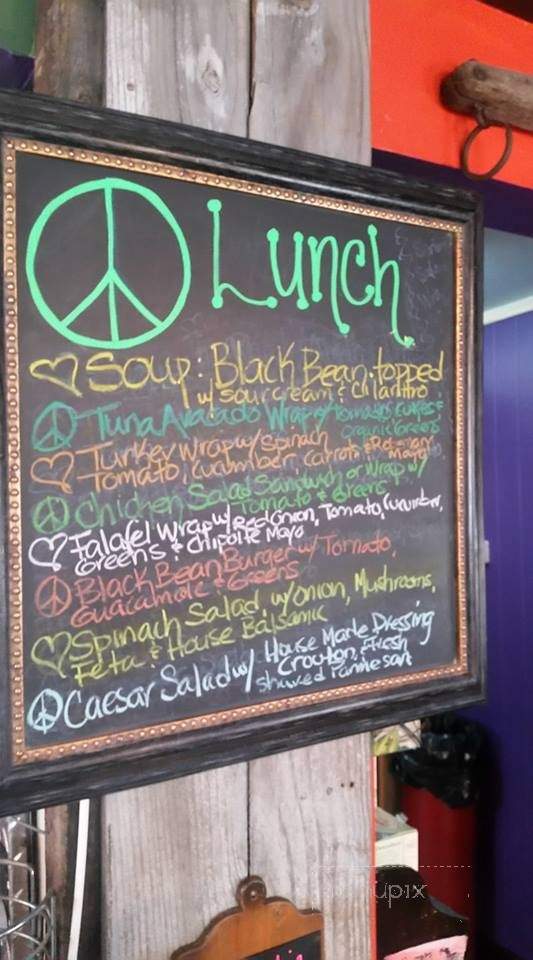 Lunch
Soup: Black Bean topped
w/ sour cream & Cilantro
Tuna Avacado Wrap w/ Tomato, Cukes &
organic Greens
Turkey Wrap w/ Spinach
Tomato, Cucumber, Carrot & Rosemary
Mayo
Chicken Salad Sandwich or Wrap w/
Tomato & Greens
Falafel Wrap w/ Red Onion, Tomato, Cucumber,
Greens & Chipolte Mayo
Black Bean Burger w/ Tomato,
Guacalmole & Greens
Spinach Salad w/ onion, Mushrooms,
Feta & House Balsamic
Caesar Salad w/ House Made Dressing
Crouton, & Fresh
Shaved Parmesan